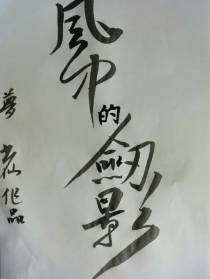 風中的劒影
夢 作品